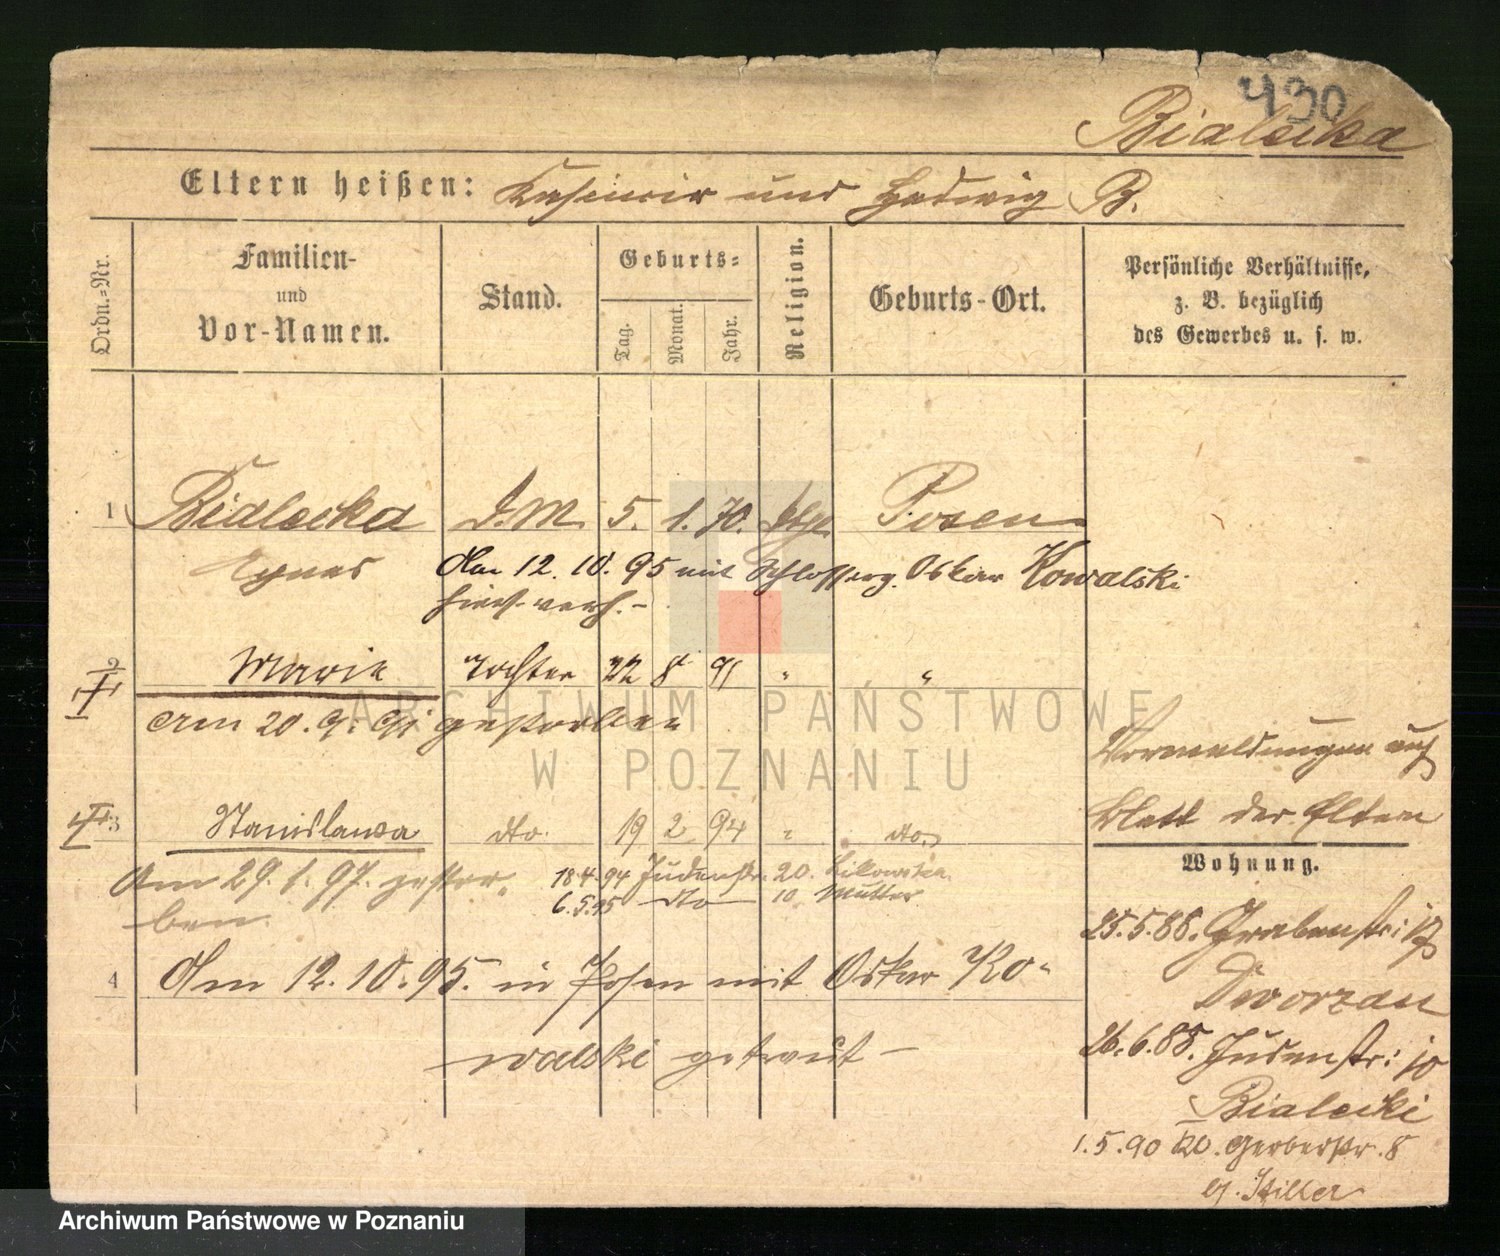 430
Bialecka
Eltern heißen: Kasimir und Hedwig B.
Ordn.-Nr.
Familien- und Vor-Namen.
Stand.
Geburts-
Tag.
Monat.
Jahr.
Religion.
Geburts-Ort.
Persönliche Verhältnisse,
z. B. bezüglich
des Gewerbes u. s. w.
1 Bialecka D.M. 5. 1. 70. kath. Posen
Agnes
Am 12. 10. 95 mit Schlosserg. Oskar Kowalski
hier verh. –
2 Marie Tochter 22 8 91 " "
Am 20. 9. 91 gestorben
3 Stanislawa dto. 19 2 94 " dto.
Am 29. 1. 97. gestor-
ben.
18.4.94 Judenstr. 20.
6.5.95 dto 10 Mutter
4 Am 12. 10. 95. in Posen mit Oskar Ko-
walski getraut –
Vormeldungen auf
Blatt der Eltern
Wohnung.
25.5.88. Grabenstr:
Dworzan
26.6.88. Judenstr: 10
Bialecki
1.5.90 Gerberstr. 8
b/. Stiller
ARCHIWUM PAŃSTWOWE
W POZNANIU
Archiwum Państwowe w Poznaniu